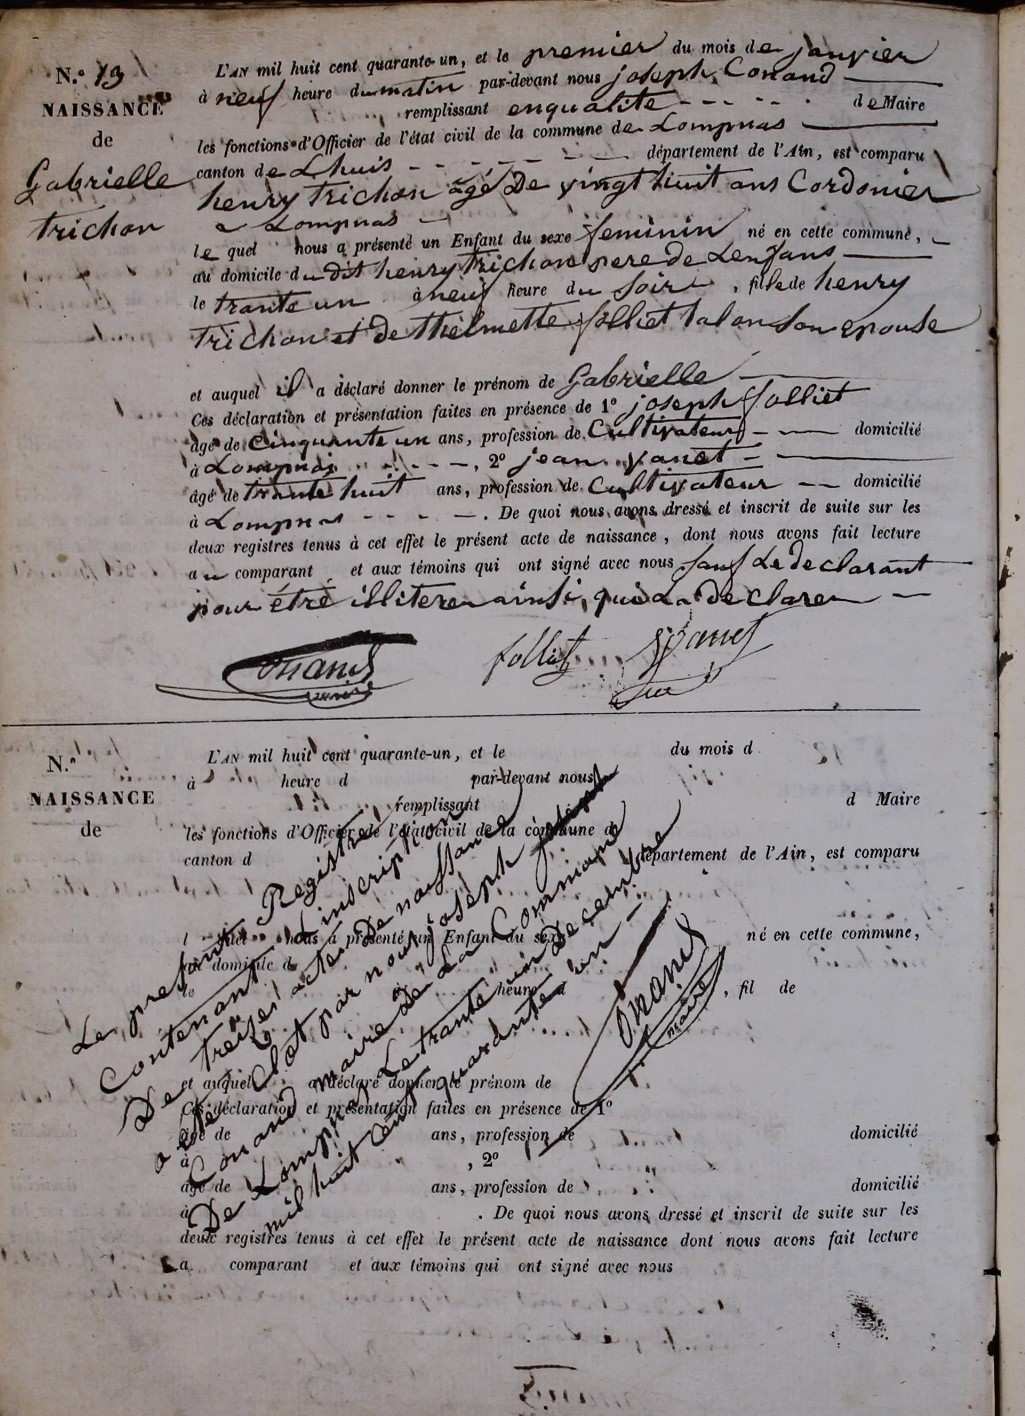 N.º 13
NAISSANCE
de
Gabrielle
trichon
L'AN mil huit cent quarante-un, et le premier du mois de janvier
à neuf heure du matin par-devant nous joseph Conand
remplissant enqualité de Maire
les fonctions d'Officier de l'état civil de la commune de Lompnas
canton de Lhuis département de l'Ain, est comparu
henry trichon agé De vingt huit ans Cordonier
a Lompnas
le quel nous a présenté un Enfant du sexe feminin né en cette commune,
au domicile du dit henry trichon pere de Lenfans
le trante un à neuf heure du soir, fille de henry
trichon et de thelmette folliet talon son epouse
et auquel il a déclaré donner le prénom de Gabrielle
Ces déclaration et présentation faites en présence de 1º joseph folliet
âgé de Cinquante un ans, profession de Cultivateur domicilié
à Lompnas, 2º jean vanet
âgé de trante huit ans, profession de Cultivateur domicilié
à Lompnas. De quoi nous avons dressé et inscrit de suite sur les
deux registres tenus à cet effet le présent acte de naissance, dont nous avons fait lecture
au comparant et aux témoins qui ont signé avec nous sauf Le declarant
pour être illitere ainsi qui La declare
Conand folliet vanet
maire
N.º
NAISSANCE
de
L'AN mil huit cent quarante-un, et le du mois d
à heure d par-devant nous
remplissant d Maire
les fonctions d'Officier de l'état civil de la commune d
canton d département de l'Ain, est comparu
l quel nous a présenté un Enfant du sexe né en cette commune,
au domicile d
le heure d , fil de
et auquel a déclaré donner le prénom de
Ces déclaration et présentation faites en présence de 1º
âgé de ans, profession de domicilié
à , 2º
âgé de ans, profession de domicilié
à . De quoi nous avons dressé et inscrit de suite sur les
deux registres tenus à cet effet le présent acte de naissance dont nous avons fait lecture
a comparant et aux témoins qui ont signé avec nous
Le present Registre
Contenant L'inscription
De treize acte De naissance
a été Clot par nous joseph
Conand maire De La Commune
De Lompnas Le trante un Decembre
mil huit cent quarante un
Conand
maire